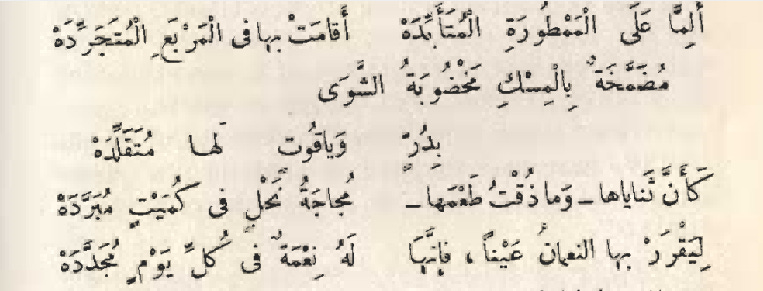 أَلِمَّا عَلَى الْمَمْطُورَةِ الْمُتَأَبِّدَهْ أَقَامَتْ بِهَا فِى الْمَرْبَعِ الْمُتَجَرِّدَهْ
مُضَمَّخَةٌ بِالْمِسْكِ مَخْضُوبَةُ الشَّوَى
بِدُرٍّ وَيَاقُوتٍ لَهَا مُتَقَلِّدَهْ
كَأَنَّ ثَنَايَاهَا - وَمَا ذُقْتُ طَعْمَهَا - مُجَاجَةُ نَحْلٍ فِى كُمَيْتٍ مُبَرَّدَهْ
لِيَقْرَرْ بِهَا النعمانُ عَيْناً ، فَإِنَّهَا لَهُ نِعْمَةٌ فِى كُلِّ يَوْمٍ مُجَدَّدَهْ